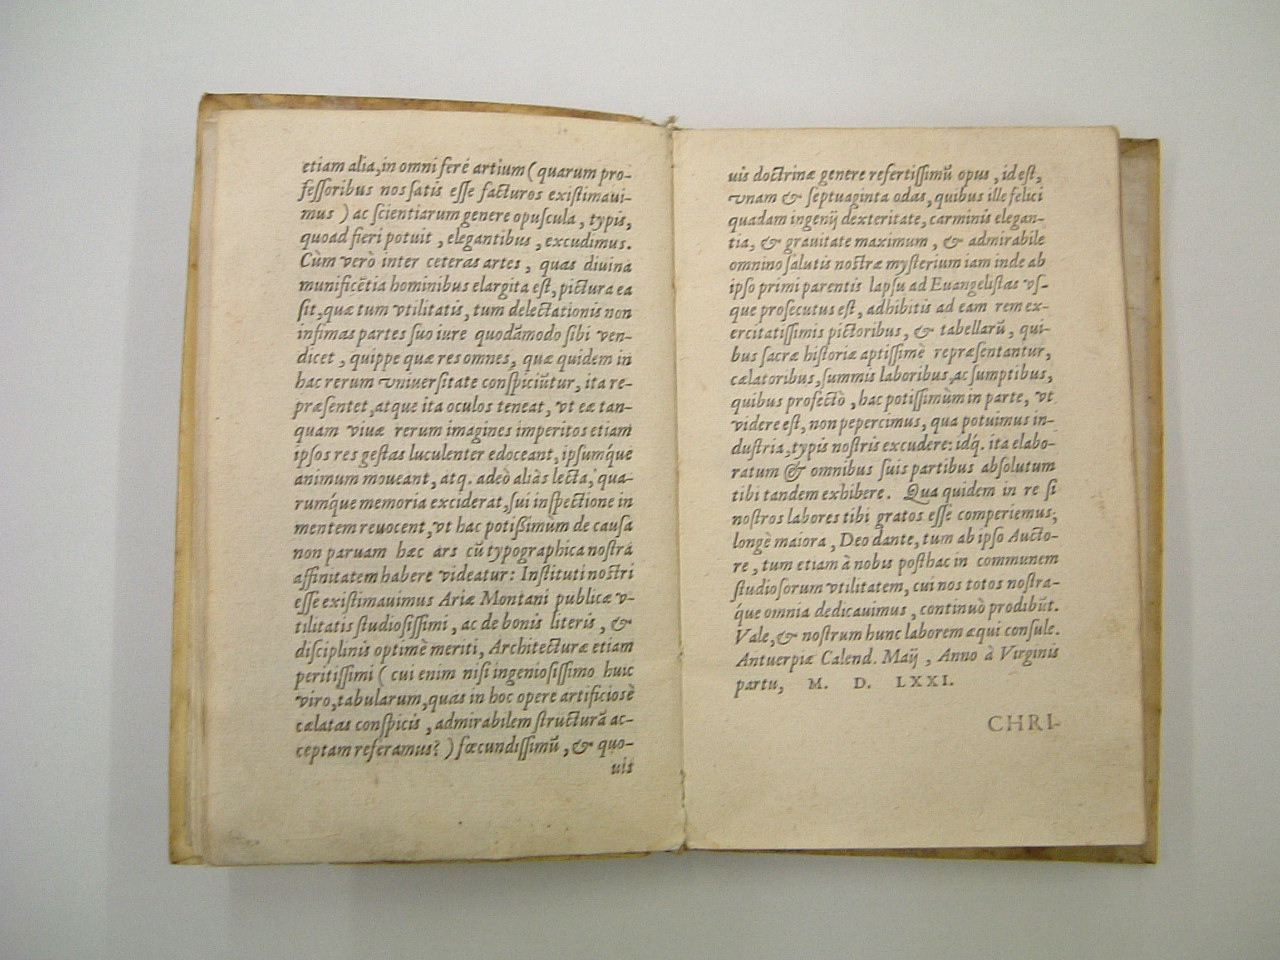 etiam alia, in omni feré artium (quarum pro-
fessoribus nos satis esse facturos existimaui-
mus) ac scientiarum genere opuscula, typis,
quoad fieri potuit, elegantibus, excudimus.
Cùm verò inter ceteras artes, quas diuina
munificẽtia hominibus elargita est, pictura ea
sit, quæ tum vtilitatis, tum delectationis non
infimas partes suo iure quodãmodo sibi ven-
dicet, quippe quæ res omnes, quæ quidem in
hac rerum vniuersitate conspiciũtur, ita re-
præsentet, atque ita oculos teneat, vt eæ tan-
quam viuæ rerum imagines imperitos etiam
ipsos res gestas luculenter edoceant, ipsumq́ue
animum moueant, atq. adeò aliàs lecta, qua-
rumq́ue memoria exciderat, sui inspectione in
mentem reuocent, vt hac potißimùm de causa
non paruam hæc ars cũ typographica nostra
affinitatem habere videatur: Instituti nostri
esse existimauimus Ariæ Montani publicæ v-
tilitatis studiosissimi, ac de bonis literis, &
disciplinis optimè meriti, Architecturæ etiam
peritissimi (cui enim nisi ingeniosissimo huic
viro, tabularum, quas in hoc opere artificiosè
cælatas conspicis, admirabilem structurã ac-
ceptam referamus?) fœcundissimũ, & quo-
uis
uis doctrinæ genere refertissimũ opus, id est,
vnam & septuaginta odas, quibus ille felici
quadam ingenij dexteritate, carminis elegan-
tia, & grauitate maximum, & admirabile
omnino salutis nostræ mysterium iam inde ab
ipso primi parentis lapsu ad Euangelistas vs-
que prosecutus est, adhibitis ad eam rem ex-
ercitatissimis pictoribus, & tabellarũ, qui-
bus sacræ historiæ aptissimè repræsentantur,
cælatoribus, summis laboribus, ac sumptibus,
quibus profectò, hac potissimùm in parte, vt
videre est, non pepercimus, qua potuimus in-
dustria, typis nostris excudere: idq́. ita elabo-
ratum & omnibus suis partibus absolutum
tibi tandem exhibere. Qua quidem in re si
nostros labores tibi gratos esse comperiemus,
longè maiora, Deo dante, tum ab ipso Aucto-
re, tum etiam à nobis posthac in communem
studiosorum vtilitatem, cui nos totos nostra-
q́ue omnia dedicauimus, continuò prodibũt.
Vale, & nostrum hunc laborem æqui consule.
Antuerpiæ Calend. Maij, Anno à Virginis
partu, M. D. LXXI.
CHRI-